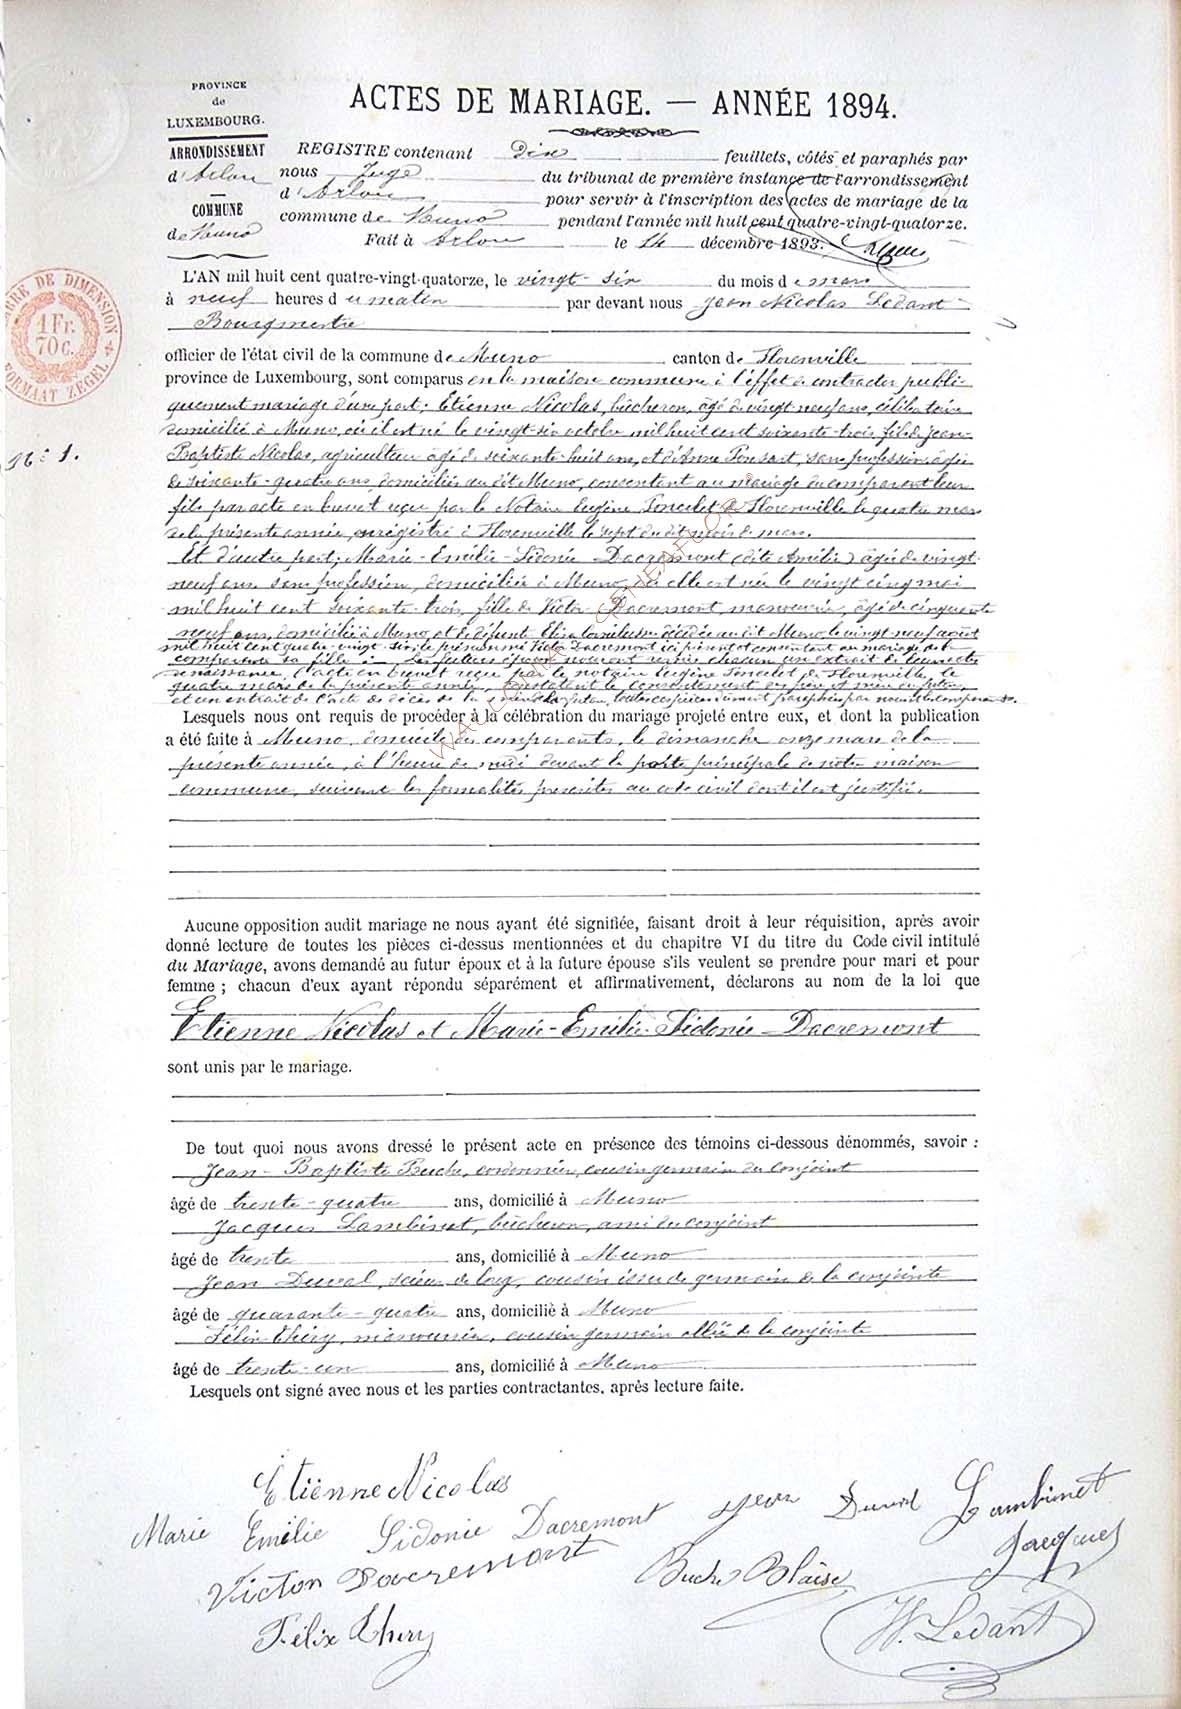 PROVINCE
de
LUXEMBOURG.
ARRONDISSEMENT
d'Arlon
COMMUNE
de Muno
ACTES DE MARIAGE. — ANNÉE 1894.
REGISTRE contenant Dix feuillets, côtés et paraphés par
nous Juge du tribunal de première instance de l'arrondissement
d'Arlon pour servir à l'inscription des actes de mariage de la
commune de Muno pendant l'année mil huit cent quatre-vingt-quatorze.
Fait à Arlon le 14 décembre 1893.
TIMBRE DE DIMENSION
1 Fr.
70 C.
FORMAAT ZEGEL
N° 1.
L'AN mil huit cent quatre-vingt-quatorze, le vingt-six du mois de mars
à neuf heures du matin par devant nous Jean Nicolas Ledant
Bourgmestre
officier de l'état civil de la commune de Muno canton de Florenville
province de Luxembourg, sont comparus en la maison commune à l'effet de contracter publi-
quement mariage d'une part; Etienne Nicolas, bûcheron, âgé de vingt-neuf ans, célibataire
domicilié à Muno, où il est né le vingt-six octobre mil huit cent soixante-trois, fils de Jean-
Baptiste Nicolas, agriculteur âgé de soixante-huit ans, et d'Anne Ponsart, sans profession, âgée
de soixante-quatre ans, domiciliés au dit Muno, consentant au mariage du comparent leur
fils par acte en brevet reçu par le Notaire Eugène Poncelet de Florenville le quatre mars
de la présente année, enregistré à Florenville le sept du dit mois de mars.
Et d'autre part; Marie-Emélie-Sidonie Dacremont (dite Amélie) âgée de vingt-
neuf ans sans profession, domiciliée à Muno, où elle est née le vingt cinq mai
mil huit cent soixante-trois, fille de Victor Dacremont, manouvrier, âgé de cinquante
neuf ans, domicilié à Muno, et de défunte Elisa décédée au dit Muno, le vingt-neuf août
mil huit cent quatre-vingt-six; le prénommé Victor Dacremont ici présent et consentant au mariage de la
comparente sa fille. Les futurs époux nous ont remis chacun un extrait de leur acte
de naissance, l'acte en brevet reçu par le notaire Eugène Poncelet de Florenville, le
quatre mars de la présente année, constatant le consentement des père et mère du futur,
et un extrait de l'acte de décès de la mère de la future, toutes ces pièces dûment paraphées par nous et les comparents.
Lesquels nous ont requis de procéder à la célébration du mariage projeté entre eux, et dont la publication
a été faite à Muno, domicile des comparents, le dimanche onze mars de la
présente année, à l'heure de midi devant la porte principale de notre maison
commune, suivant les formalités prescrites au code civil dont il est justifié.
Aucune opposition audit mariage ne nous ayant été signifiée, faisant droit à leur réquisition, après avoir
donné lecture de toutes les pièces ci-dessus mentionnées et du chapitre VI du titre du Code civil intitulé
du Mariage, avons demandé au futur époux et à la future épouse s'ils veulent se prendre pour mari et pour
femme ; chacun d'eux ayant répondu séparément et affirmativement, déclarons au nom de la loi que
Etienne Nicolas et Marie-Emélie-Sidonie Dacremont
sont unis par le mariage.
De tout quoi nous avons dressé le présent acte en présence des témoins ci-dessous dénommés, savoir :
Jean-Baptiste Buche, cordonnier, cousin germain du conjoint
âgé de trente-quatre ans, domicilié à Muno
Jacques Lambinet, bûcheron, ami du conjoint
âgé de trente ans, domicilié à Muno
Jean Duval, scieur de long, cousin issu de germain de la conjointe
âgé de quarante-quatre ans, domicilié à Muno
Félix Théry, manouvrier, cousin germain allié de la conjointe
âgé de trente-un ans, domicilié à Muno
Lesquels ont signé avec nous et les parties contractantes, après lecture faite.
Etiënne Nicolas
Marie Emélie Sidonie Dacremont Jean Duval Lambinet
Jacques
Victor Dacremont Buche Blaise
Félix Thery N. Ledant
WAUCOMA - GENEAFLOR